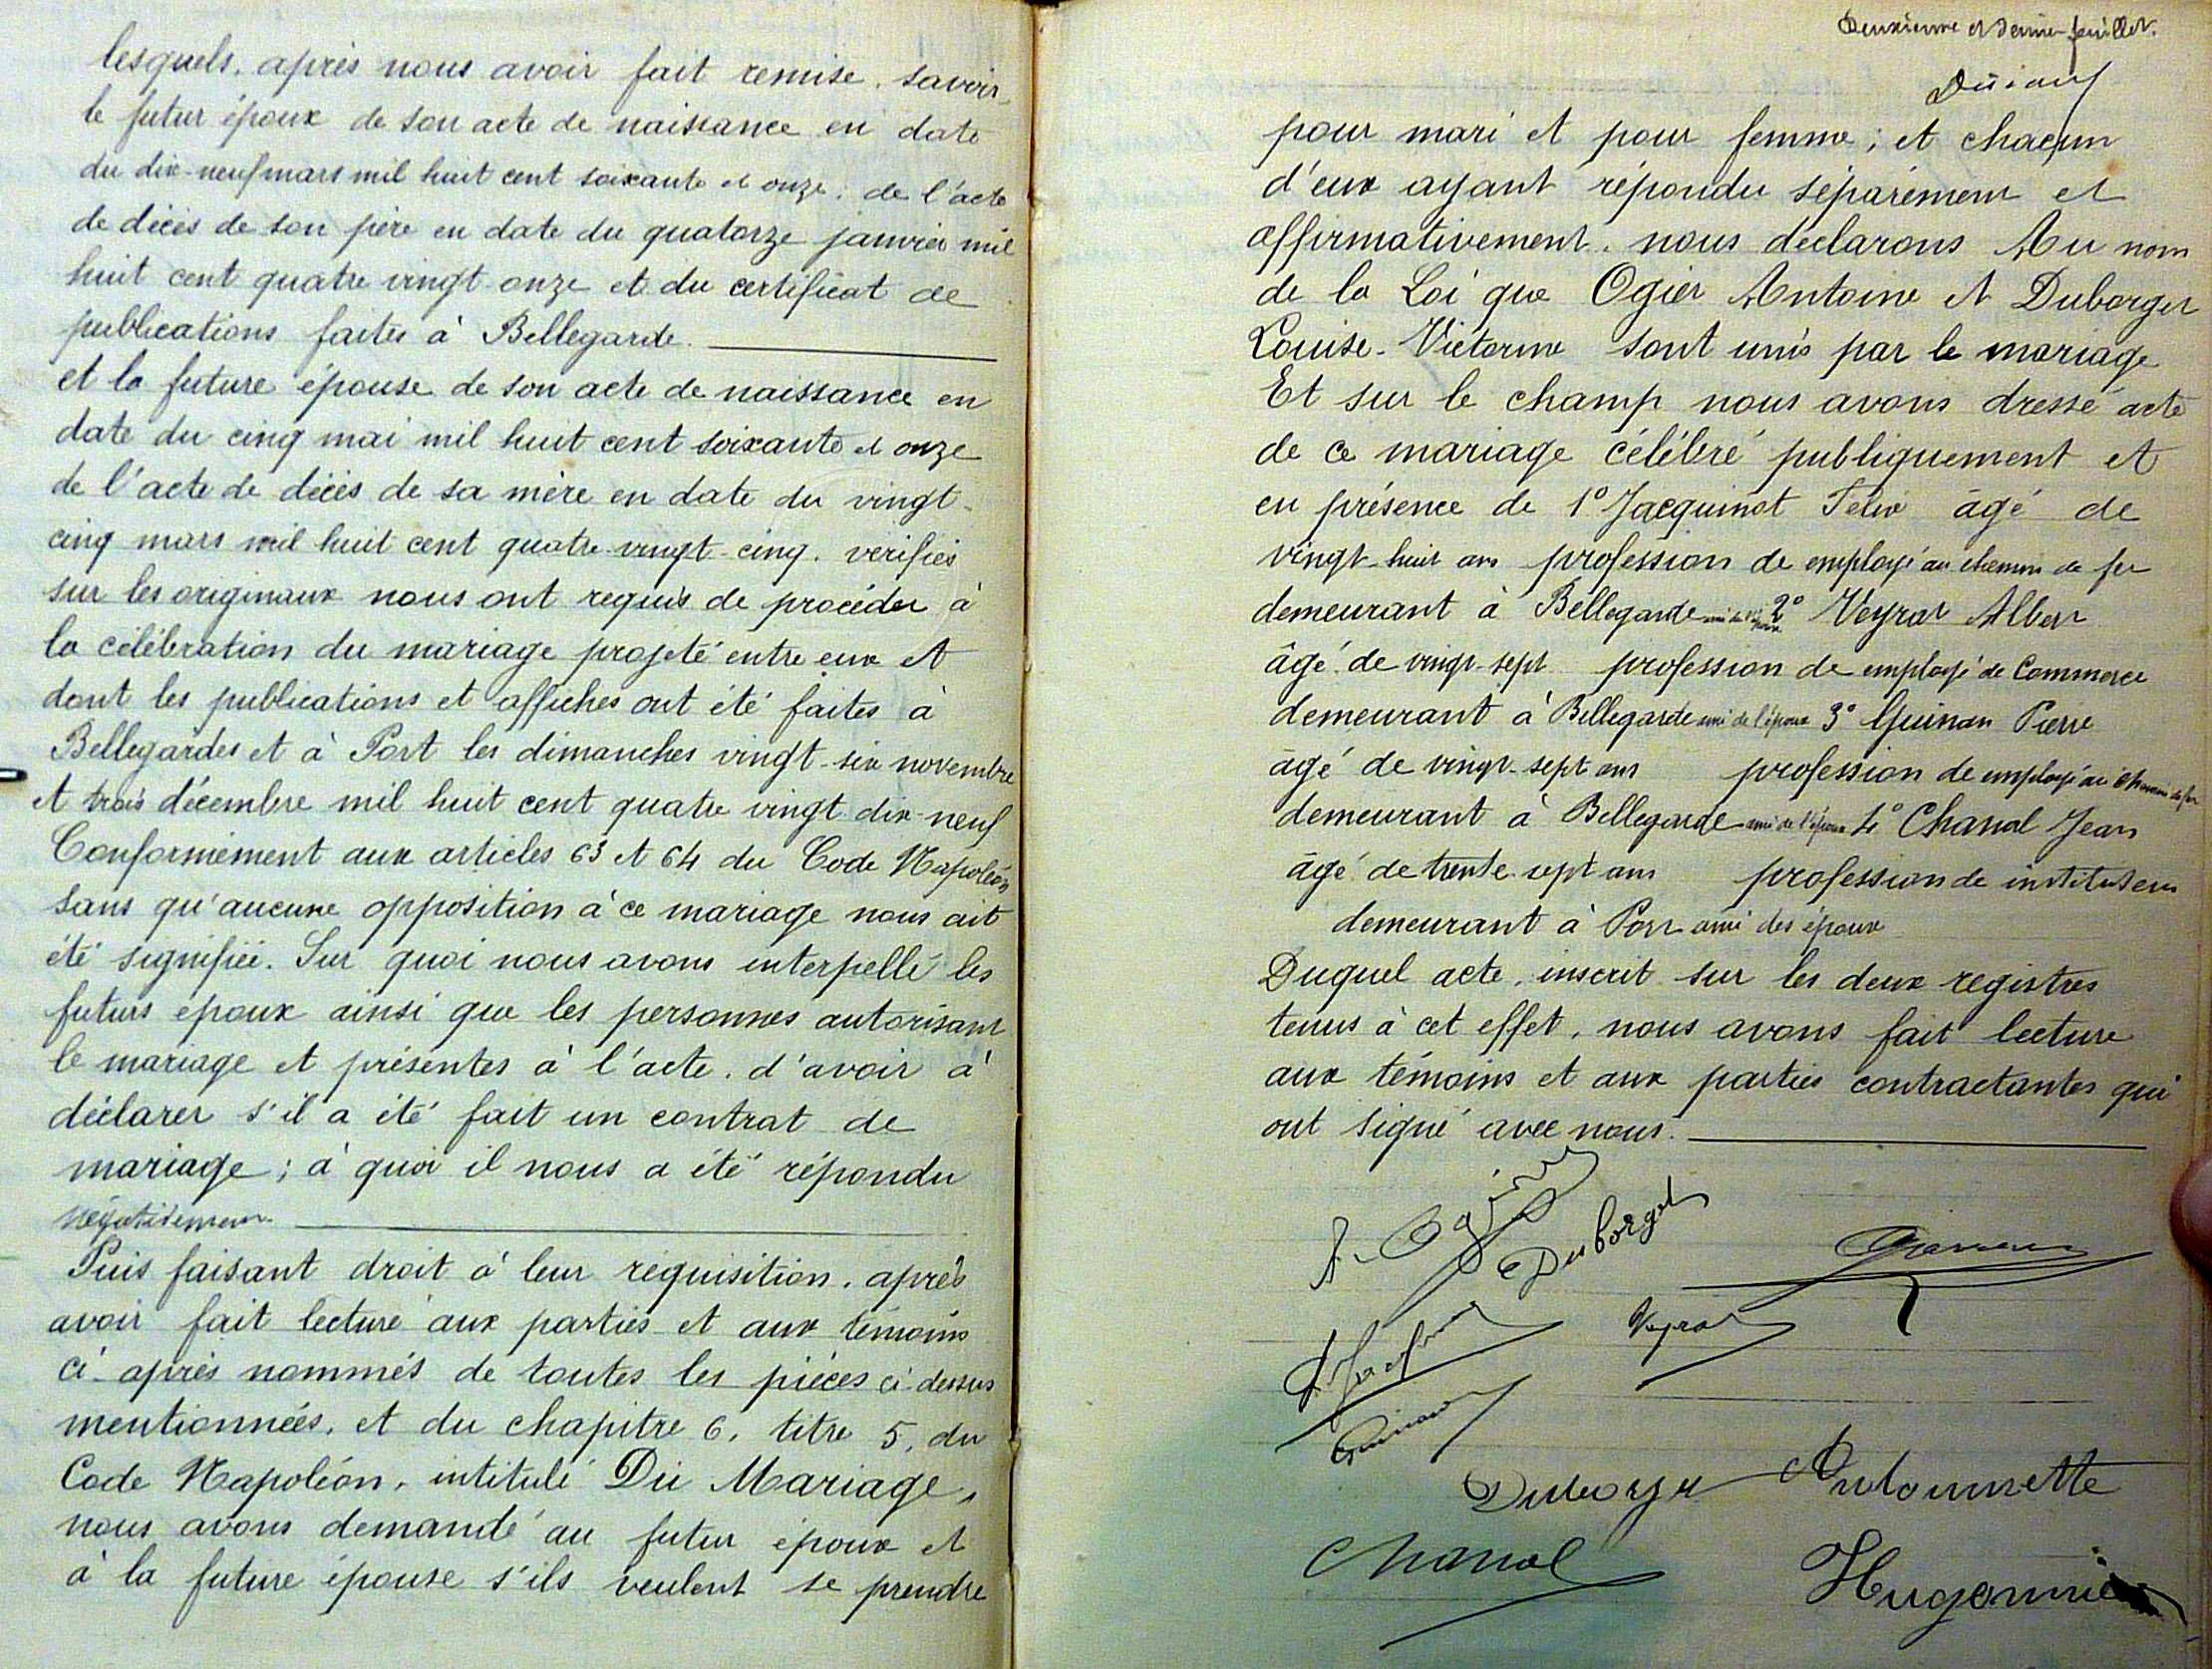 lesquels, après nous avoir fait remise, savoir
le futur époux de son acte de naissance en date
du dix-neuf mars mil huit cent soixante et onze, de l'acte
de décès de son père en date du quatorze janvier mil
huit cent quatre vingt onze et du certificat de
publications faites à Bellegarde.
et la future épouse de son acte de naissance en
date du cinq mai mil huit cent soixante et onze
de l'acte de décès de sa mère en date du vingt-
cinq mars mil huit cent quatre-vingt-cinq. vérifiés
sur les originaux nous ont requis de procéder à
la célébration du mariage projeté entre eux et
dont les publications et affiches ont été faites à
Bellegardes et à Port les dimanches vingt-six novembre
et trois décembre mil huit cent quatre vingt dix-neuf
Conformément aux articles 63 et 64 du Code Napoléon
sans qu'aucune opposition à ce mariage nous ait
été signifiée. Sur quoi nous avons interpellé les
futurs époux ainsi que les personnes autorisant
le mariage et présentes à l'acte, d'avoir à
déclarer s'il a été fait un contrat de
mariage ; à quoi il nous a été répondu
négativement
Puis faisant droit à leur réquisition, après
avoir fait lecture aux parties et aux témoins
ci-après nommés de toutes les pièces ci-dessus
mentionnées, et du chapitre 6, titre 5, du
Code Napoléon, intitulé Du Mariage,
nous avons demandé au futur époux et
à la future épouse s'ils veulent se prendre
Deuxième et dernier feuillet.
pour mari et pour femme ; et chacun
d'eux ayant répondu séparément et
affirmativement, nous déclarons Au nom
de la Loi que Ogier Antoine et Duborget
Louise-Victorine sont unis par le mariage
Et sur le champ nous avons dressé acte
de ce mariage célébré publiquement et
en présence de 1° Jacquinot Félix âgé de
vingt-huit ans profession de employé au chemin de fer
demeurant à Bellegarde ami de l'époux 2° Veyrat Albert
âgé de vingt-sept profession de employé de Commerce
demeurant à Bellegarde ami de l'époux 3° Guinan Pierre
âgé de vingt-sept ans profession de employé au chemin de fer
demeurant à Bellegarde ami de l'époux 4° Chanal Jean
âgé de trente-sept ans profession de instituteur
demeurant à Port ami des époux
Duquel acte, inscrit sur les deux registres
tenus à cet effet, nous avons fait lecture
aux témoins et aux parties contractantes qui
ont signé avec nous.
A. Ogier
Duborget
Veyrat
Guinan
Duborget Antoinette
Chanal
Hugonnier